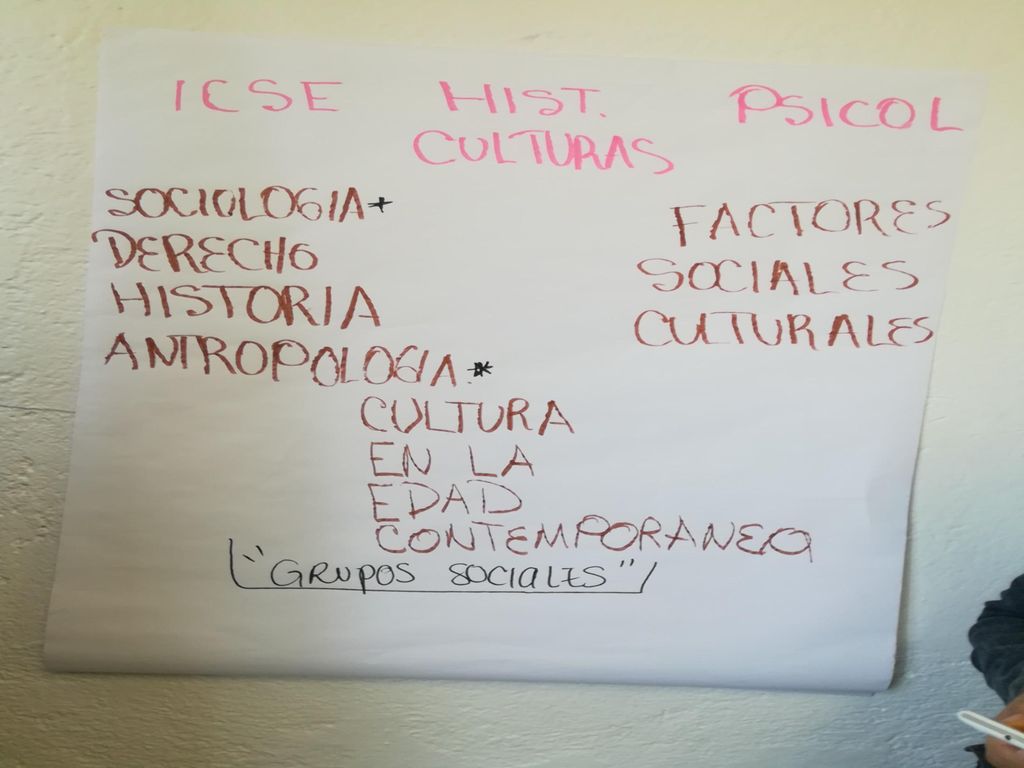 ICSE HIST. PSICOL
CULTURAS
SOCIOLOGIA+
DERECHO
HISTORIA
ANTROPOLOGIA.*
FACTORES
SOCIALES
CULTURALES
CULTURA
EN LA
EDAD
CONTEMPORANEA
"GRUPOS SOCIALES"